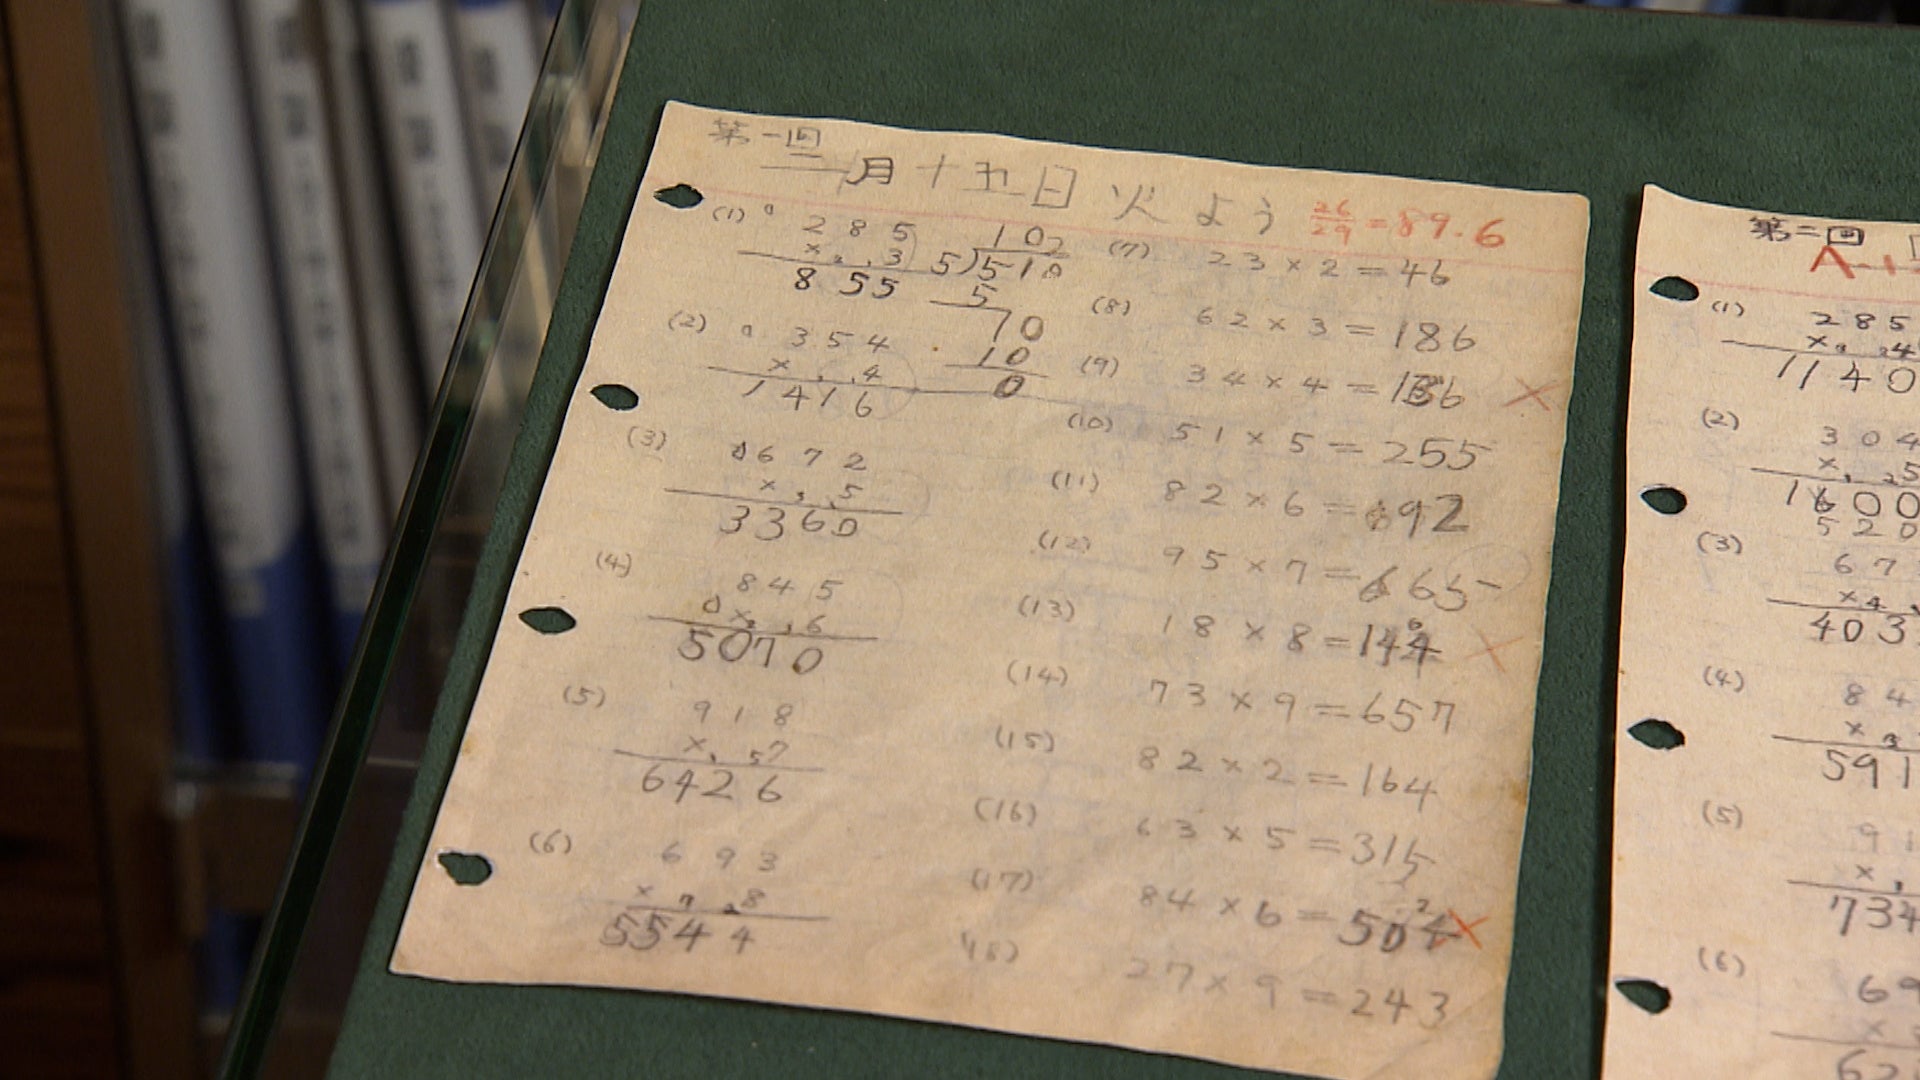 第一回
二月十五日 火よう 26/29 = 89.6
(1) 285
×3
855
102
5)510
5
10
10
0
(2) 354
×4
1416
(3) 672
×5
3360
(4) 845
×6
5070
(5) 918
×7
6426
(6) 693
×8
5544
(7) 23×2=46
(8) 62×3=186
(9) 34×4=136 ×
(10) 51×5=255
(11) 82×6=492
(12) 95×7=665
(13) 18×8=144 ×
(14) 73×9=657
(15) 82×2=164
(16) 63×5=315
(17) 84×6=504 ×
(18) 27×9=243
第二回
(1) 285
×4
1140
(2) 304
×5
(3) 67
403
(4) 84
591
(5) 91
734
(6) 69